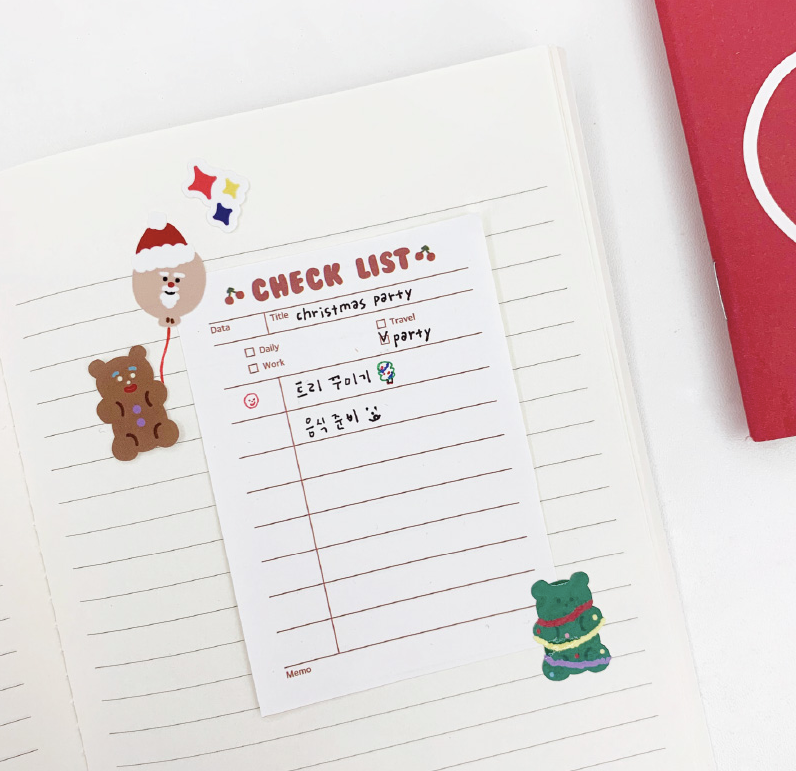 CHECK LIST
Data Title christmas party
Daily Travel
Work party
트리 꾸미기
음식 준비
Memo